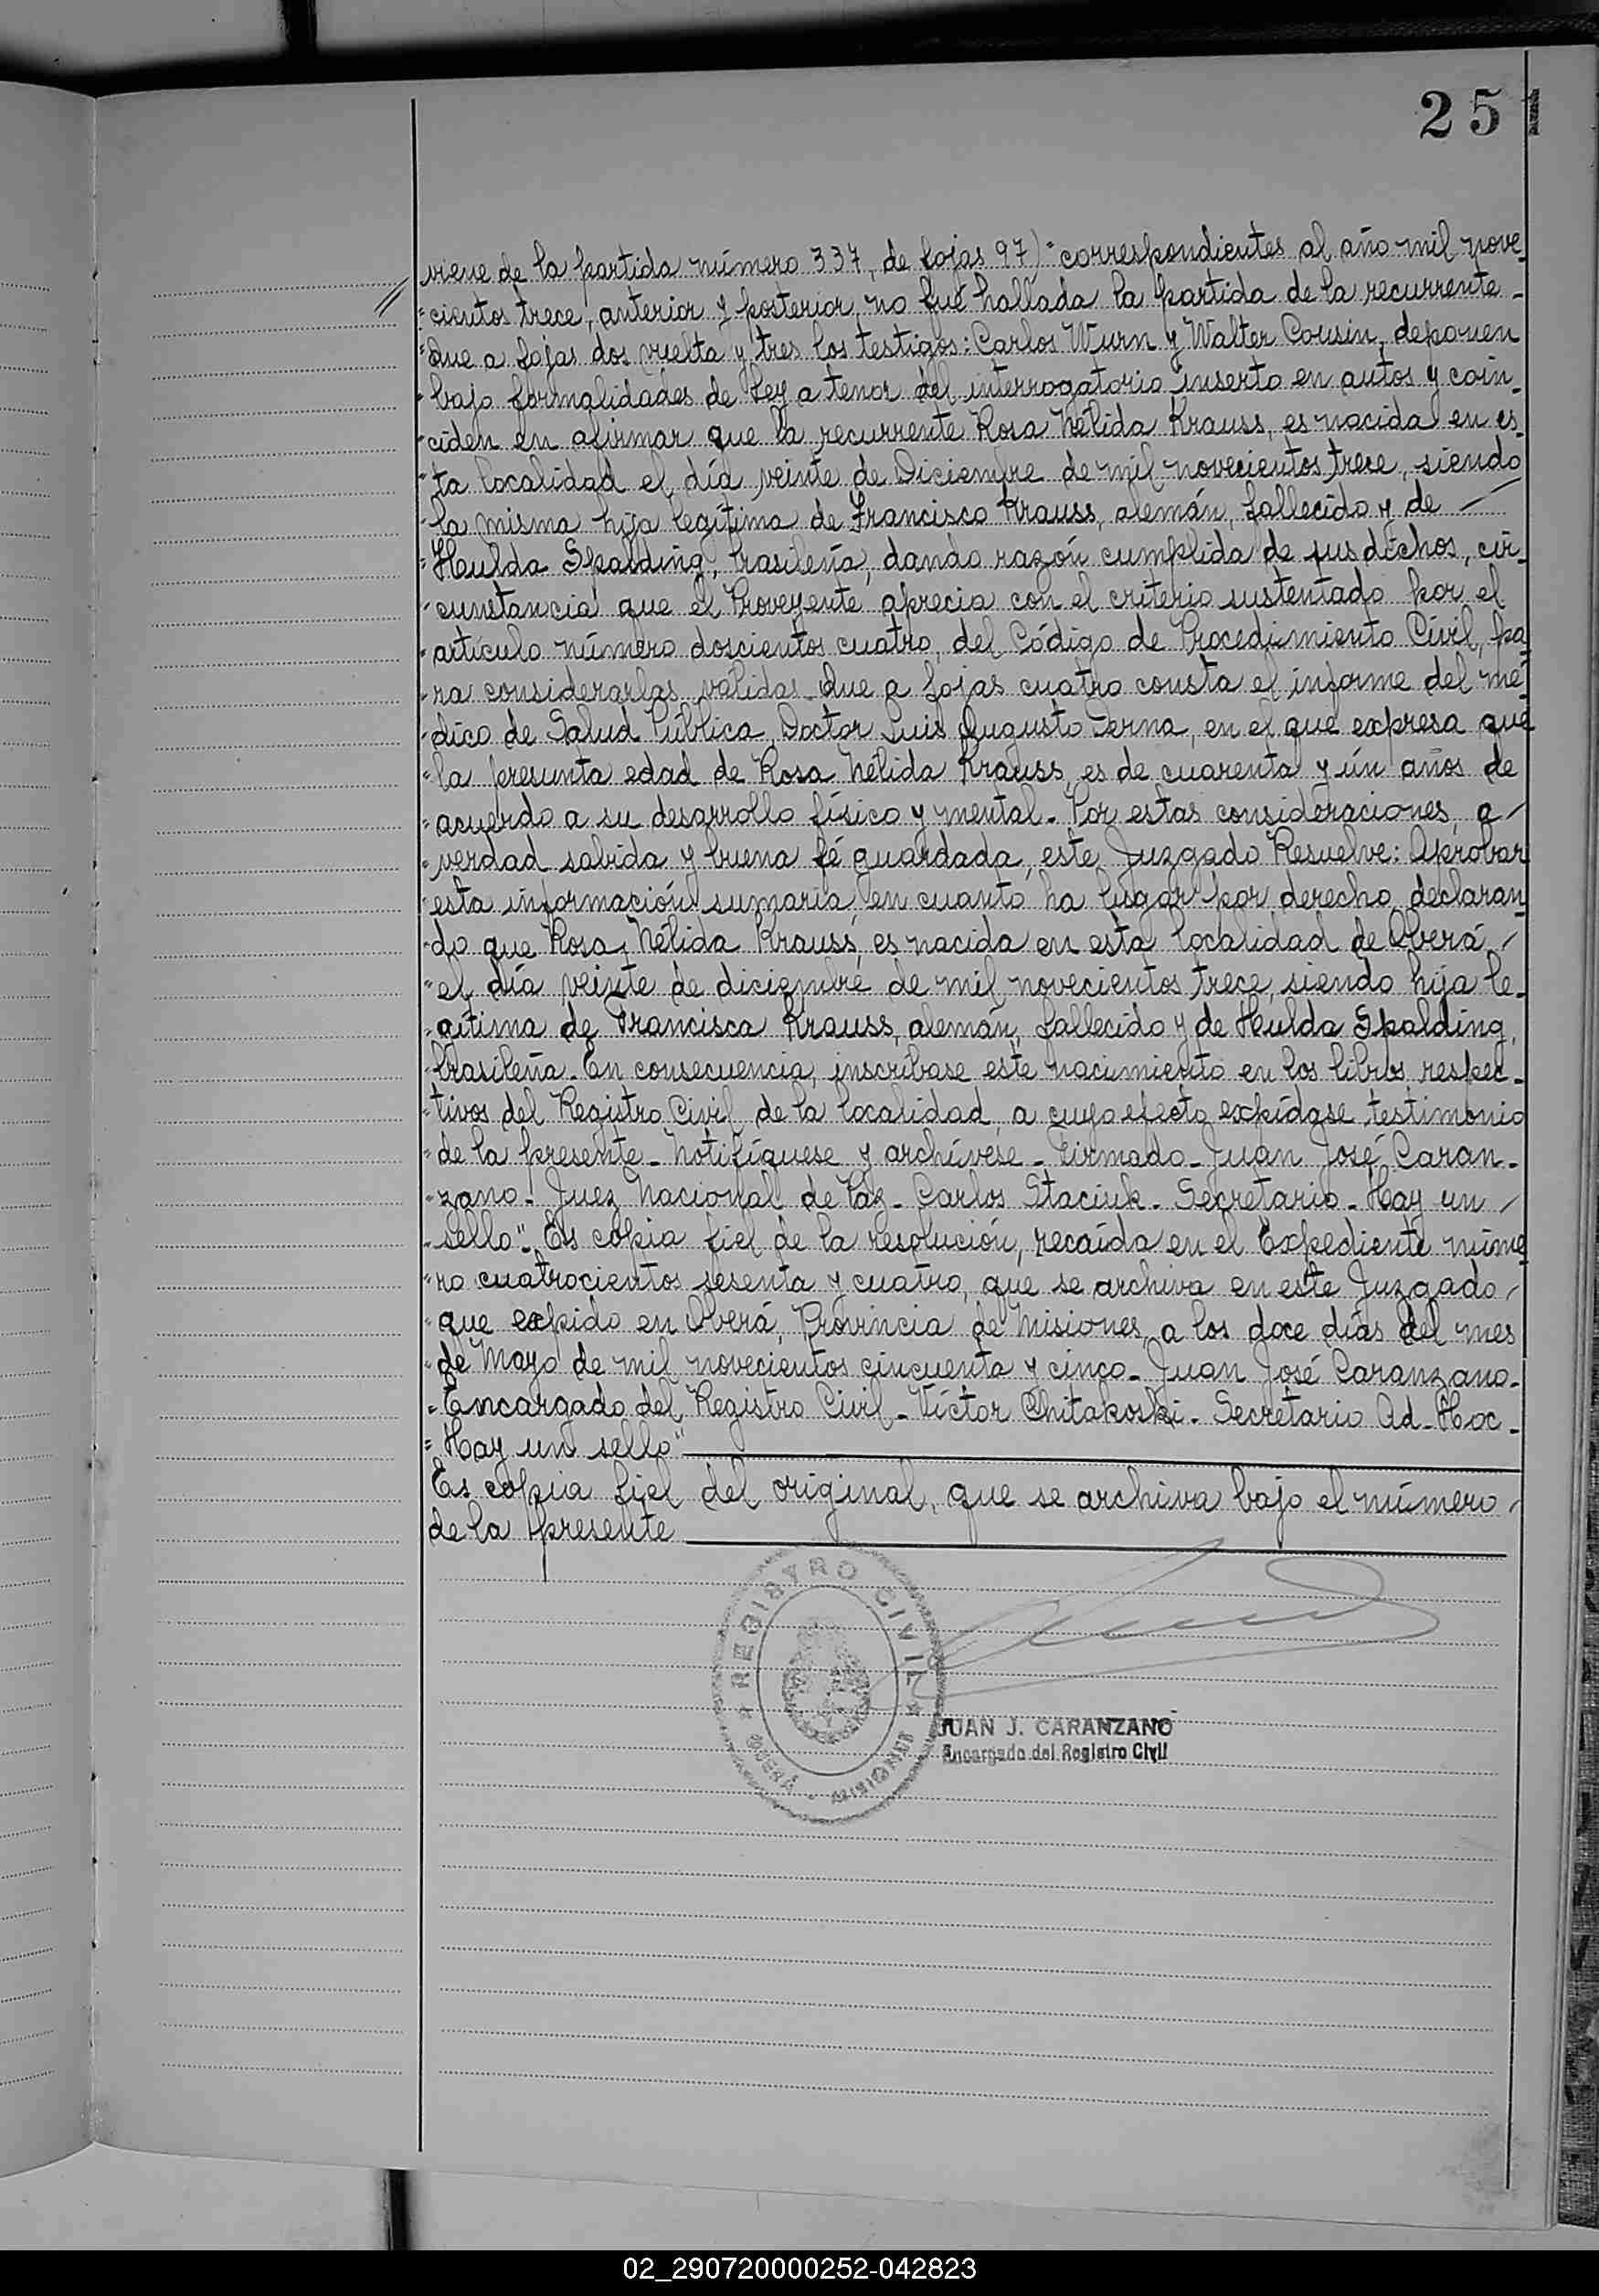 25
viene de la partida número 337, de fojas 97) "correspondientes al año mil nove
"cientos trece, anterior y posterior, no fué hallada la partida de la recurrente-
"Que a fojas dos vuelta y tres los testigos: Carlos Wurn y Walter Cousin, deponen
"bajo formalidades de Ley a tenor del interrogatorio inserto en autos y coin-
"ciden en afirmar que la recurrente Rosa Nélida Krauss, es nacida en es-
"ta localidad el día veinte de Diciembre de mil novecientos trece, siendo
"la misma hija legítima de Francisco Krauss, alemán, fallecido y de —
"Hulda Spalding, brasileña, dando razón cumplida de sus dichos, cir-
"cunstancia que el Proveyente aprecia con el criterio sustentado por el
"artículo número doscientos cuatro, del Código de Procedimiento Civil, pa
"ra considerarlas validas-Que a fojas cuatro consta el informe del mé-
"dico de Salud Pública, Doctor Luis Augusto Derna, en el que expresa que
"la presunta edad de Rosa Nélida Krauss, es de cuarenta y ún años de
"acuerdo a su desarrollo físico y mental-Por estas consideraciones, a/
"verdad sabida y buena fé guardada, este Juzgado Resuelve: Aprobar
"esta información sumaria, en cuanto ha lugar por derecho, declaran
"do que Rosa Nélida Krauss, es nacida en esta localidad de Oberá /
"el día veinte de diciembre de mil novecientos trece, siendo hija le-
"gítima de Francisca Krauss, alemán, fallecido y de Hulda Spalding,
"brasileña-En consecuencia, inscríbase este nacimiento en los libros respec-
"tivos del Registro Civil de la localidad, a cuyo efecto expídase testimonio
"de la presente-Notifíquese y archívese-Firmado-Juan José Caran-
"zano-Juez Nacional de Paz-Carlos Staciuk-Secretario-Hay un /
"sello"-Es copia fiel de la resolución, recaída en el Expediente núme
"ro cuatrocientos sesenta y cuatro, que se archiva en este Juzgado /
"que expido en Oberá, Provincia de Misiones, a los doce días del mes
"de Mayo de mil novecientos cincuenta y cinco-Juan José Caranzano-
"Encargado del Registro Civil-Víctor Chitakoski-Secretario Ad-Hoc-
"Hay un sello"
Es copia fiel del original, que se archiva bajo el número /
de la presente
REGISTRO CIVIL
OBERÁ - MISIONES
JUAN J. CARANZANO
Encargado del Registro Civil
02_290720000252-042823